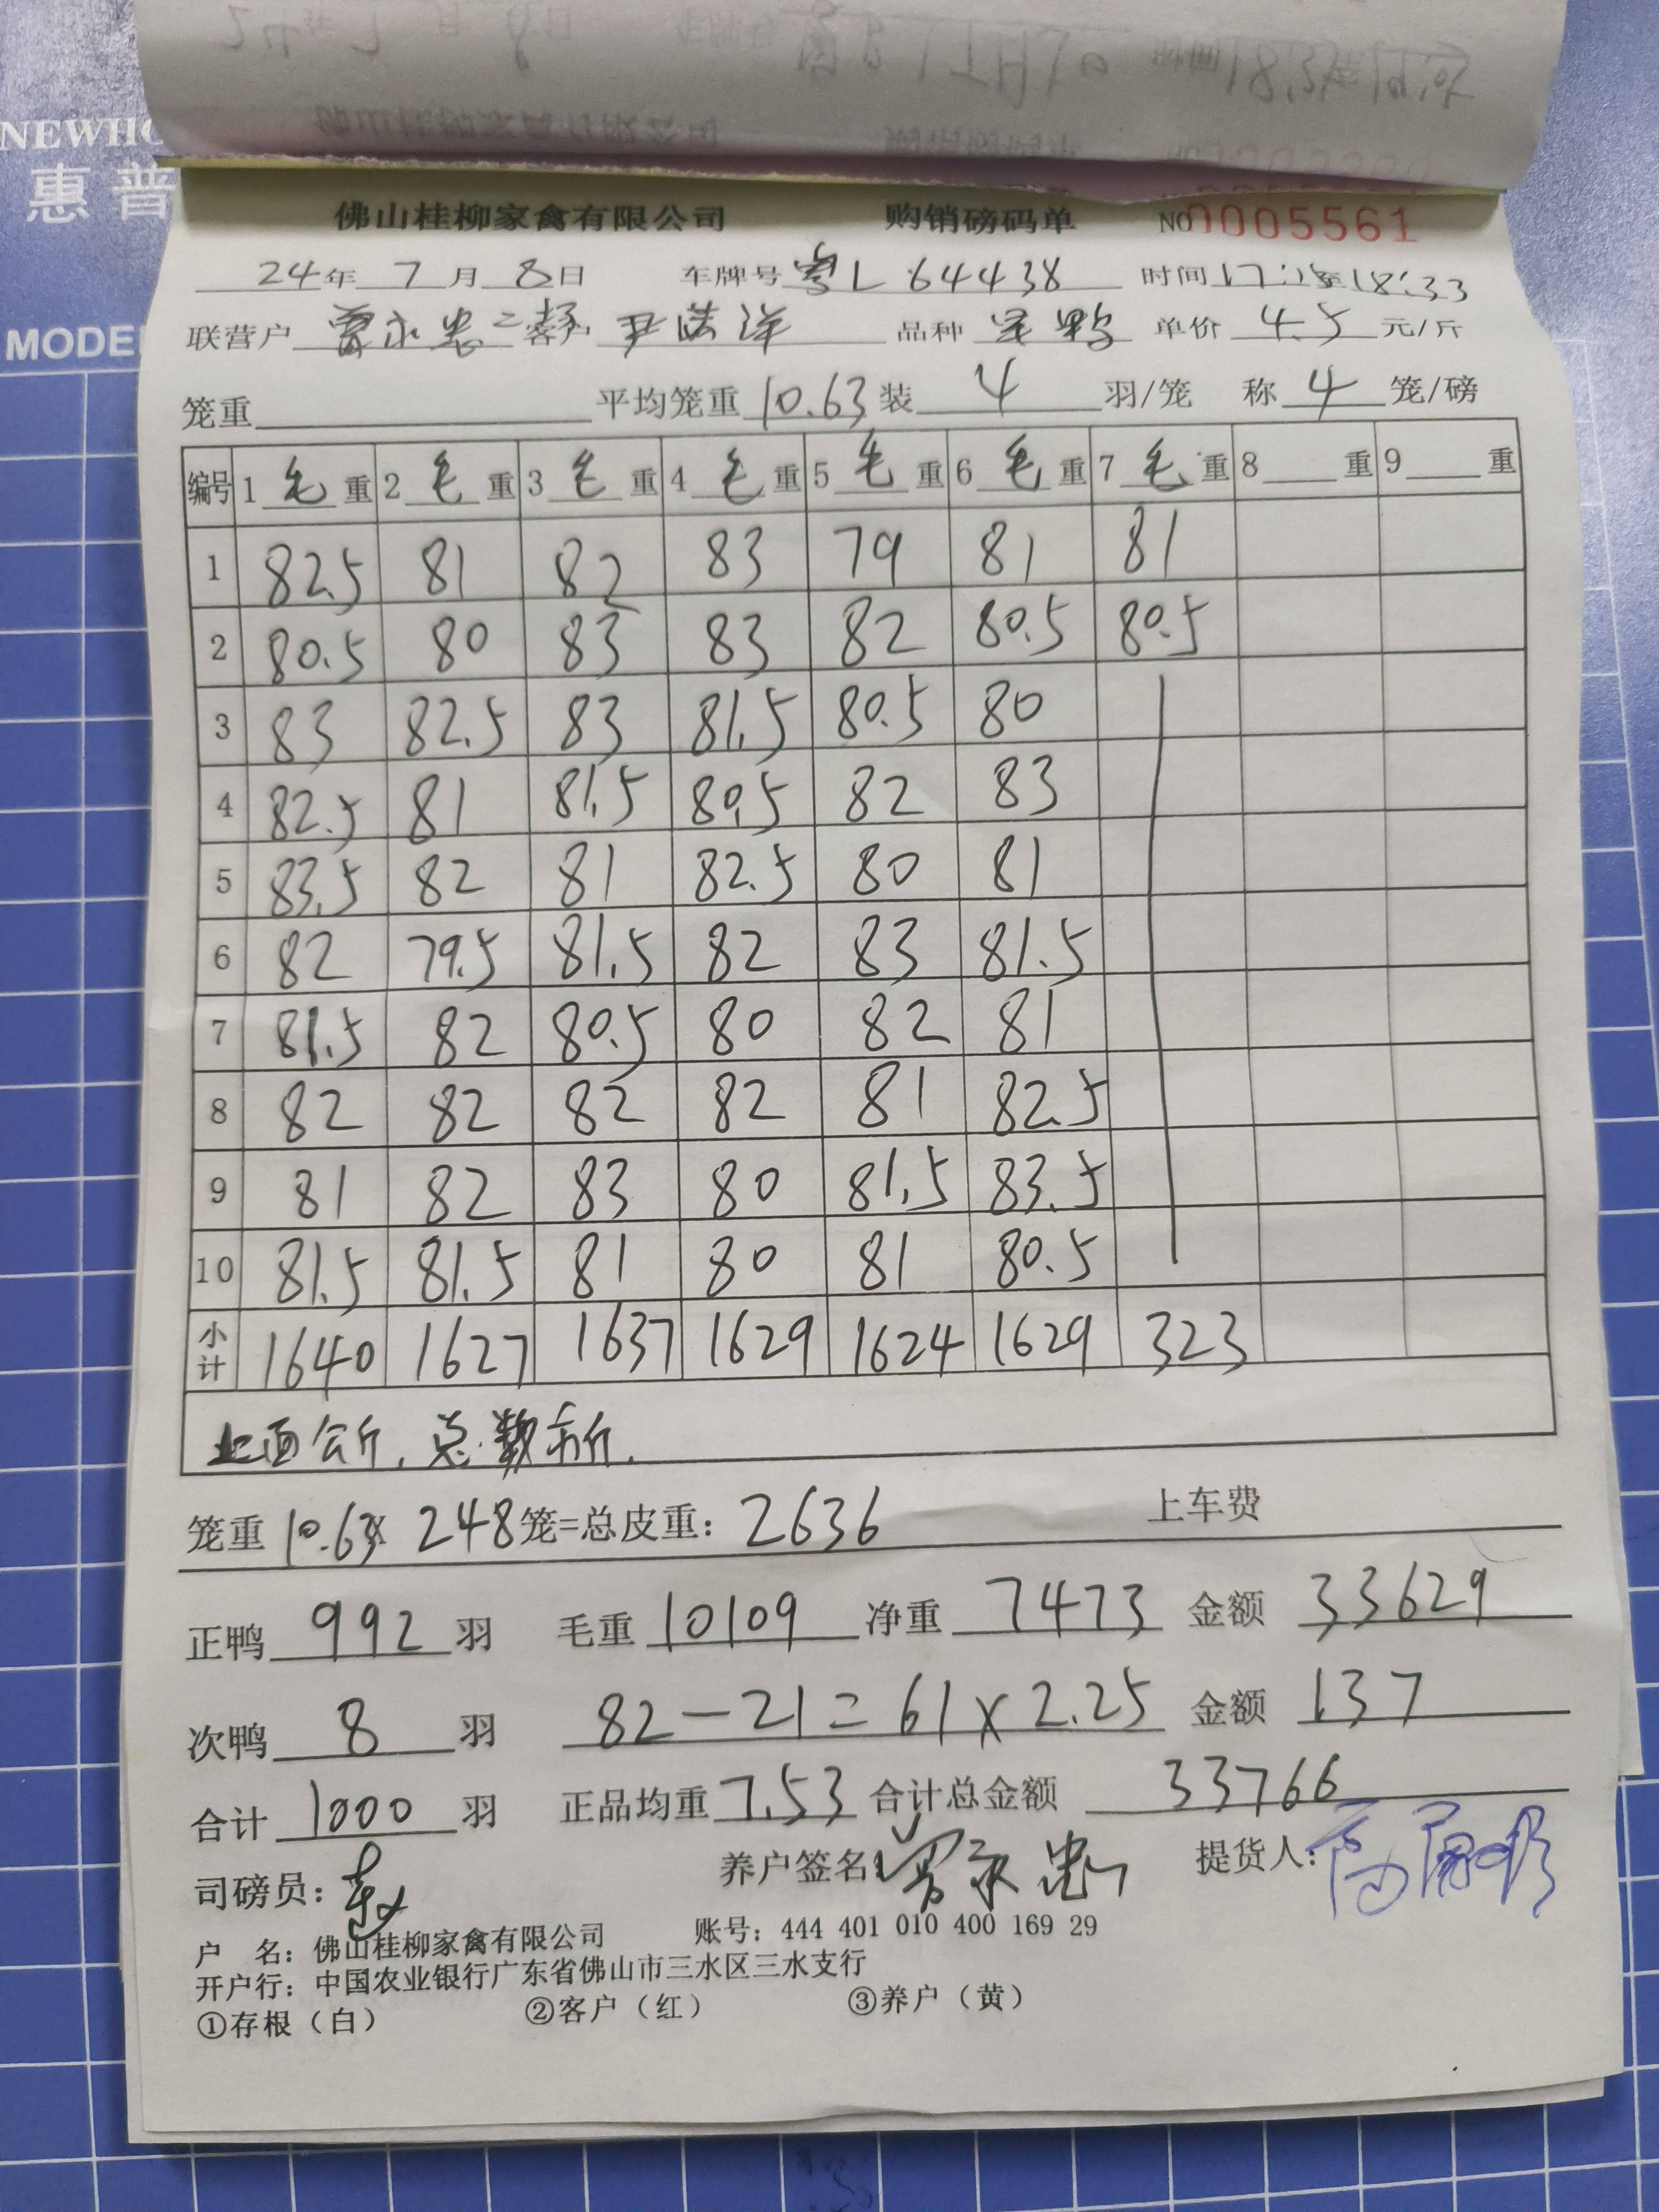 NEWH
惠普
MODE
佛山桂柳家禽有限公司 购销磅码单 NO 0005561
24年 7月 8日 车牌号 粤L 64438 时间 17:18至18:33
联营户 曾永忠二棚 客户 尹洪洋 品种 单价 4.5 元/斤
笼重 平均笼重 10.63 装 4 羽/笼 称 4 笼/磅
编号 1 毛 重 2 毛 重 3 毛 重 4 毛 重 5 毛 重 6 毛 重 7 毛 重 8 重 9 重
1 82.5 81 82 83 79 81 81
2 80.5 80 83 83 82 80.5 80.5
3 83 82.5 83 81.5 80.5 80
4 82.5 81 81.5 80.5 82 83
5 83.5 82 81 82.5 80 81
6 82 79.5 81.5 82 83 81.5
7 81.5 82 80.5 80 82 81
8 82 82 82 82 81 82.5
9 81 82 83 80 81.5 83.5
10 81.5 81.5 81 80 81 80.5
小计 1640 1627 1637 1629 1624 1629 323
上面公斤,总数市斤.
笼重 10.63 x 248 笼=总皮重: 2636 上车费
正鸭 992 羽 毛重 10109 净重 7473 金额 33629
次鸭 8 羽 82-21=61x2.25 金额 137
合计 1000 羽 正品均重 7.53 合计总金额 33766
司磅员: 养户签名: 曾永忠 提货人:
户 名: 佛山桂柳家禽有限公司 账号: 444 401 010 400 169 29
开户行: 中国农业银行广东省佛山市三水区三水支行
①存根(白) ②客户(红) ③养户(黄)